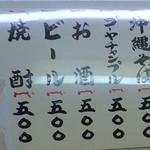 沖縄そば 五〇〇
ゴーヤチャンプル 五〇〇
お酒 五〇〇
ビール 五〇〇
焼酎 五〇〇